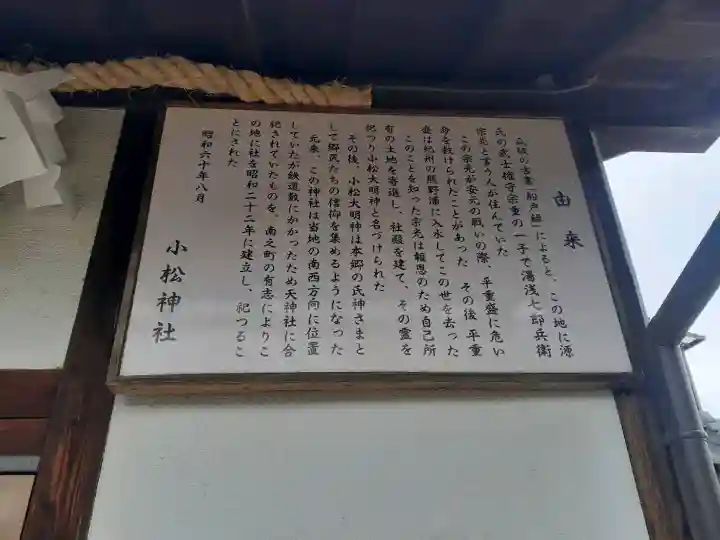 由来
の古書「船戸組」によると、この地に源
氏の武士権守宗重の一子で湯浅七郎兵衛
宗光と言う人が住んでいた
この宗光が安元の戦いの際、平重盛に危い
命を救けられたことがあった その後 平重
盛は紀州の熊野灘に入水してこの世を去った
このことを知った宗光は報恩のため自己所
有の土地を寄進し、社殿を建て、その霊を
祀つり小松大明神と名づけられた
その後、小松大明神は本郷の氏神さまと
して郷民たちの信仰を集めるようになった
元来、この神社は当地の南西方向に位置
していたが鉄道敷にかかったため天神社に合
祀されていたものを、南之町の有志によりこ
の地に社を昭和二十二年に建立し、祀つるこ
とにされた
昭和六十年八月
小松神社